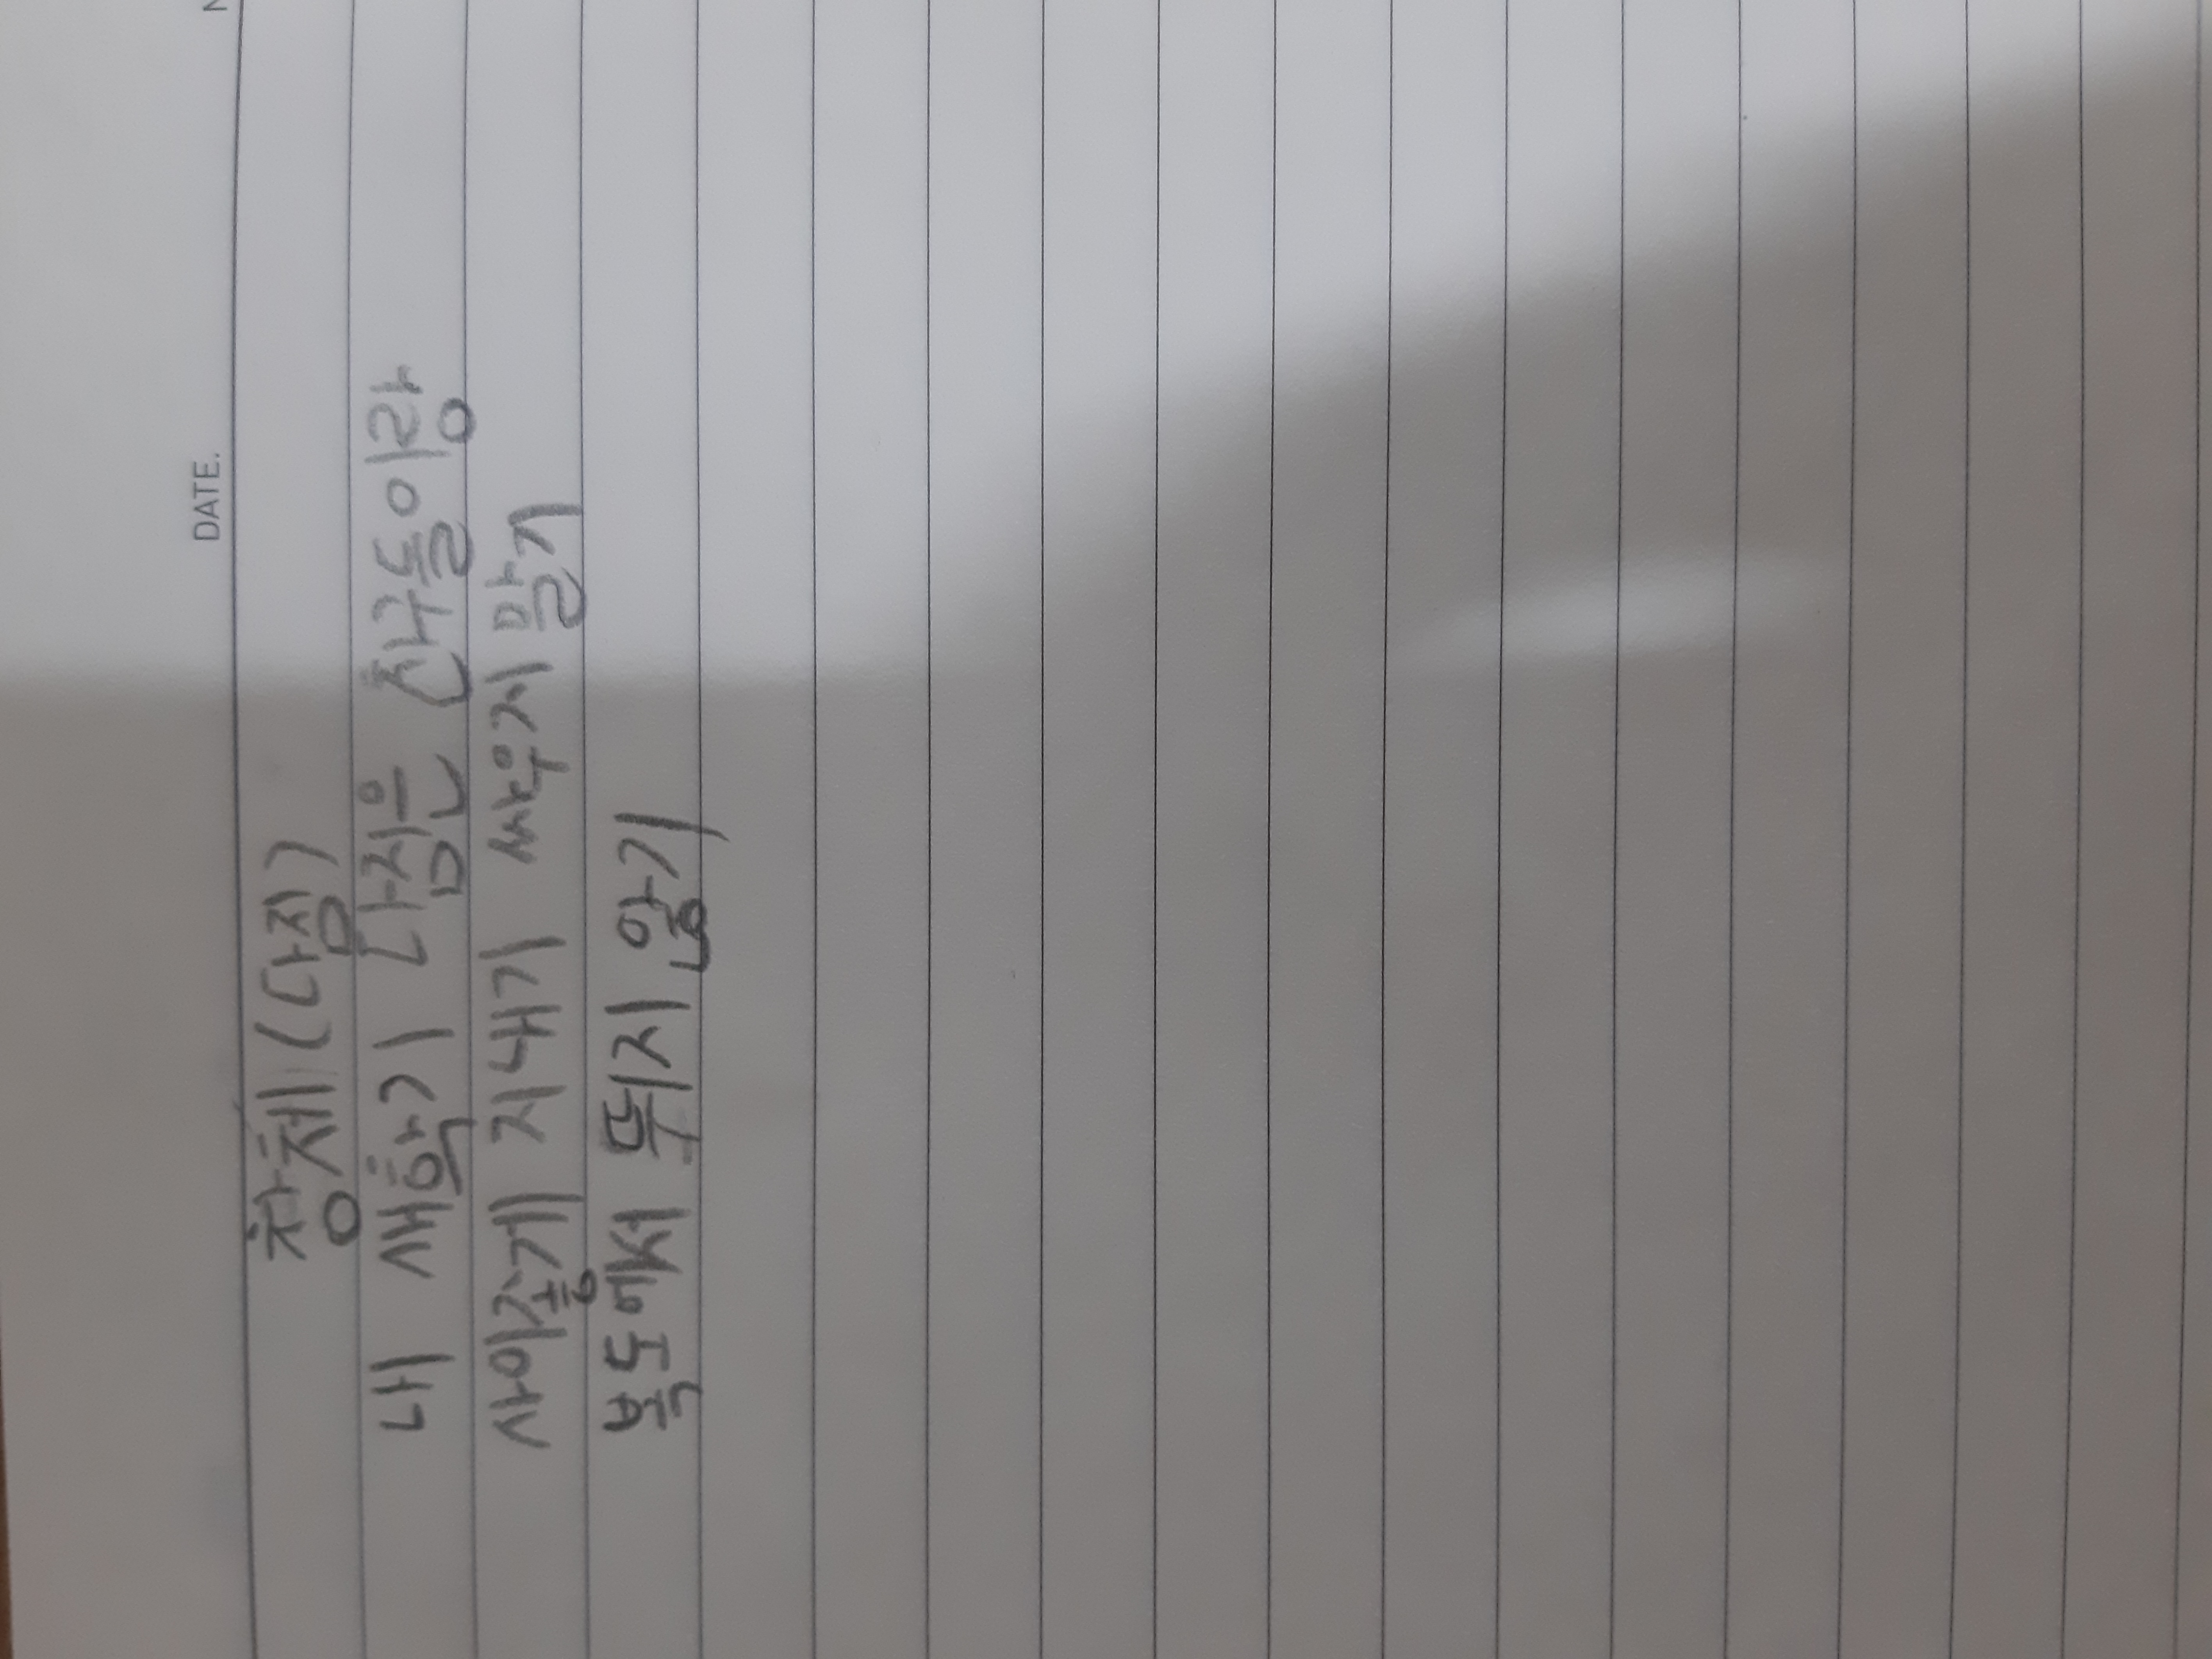 DATE.
창체(다짐)
내 새학기 다짐은 친구들이랑
사이좋게 지내기 싸우지 말기
복도에서 뛰지 않기